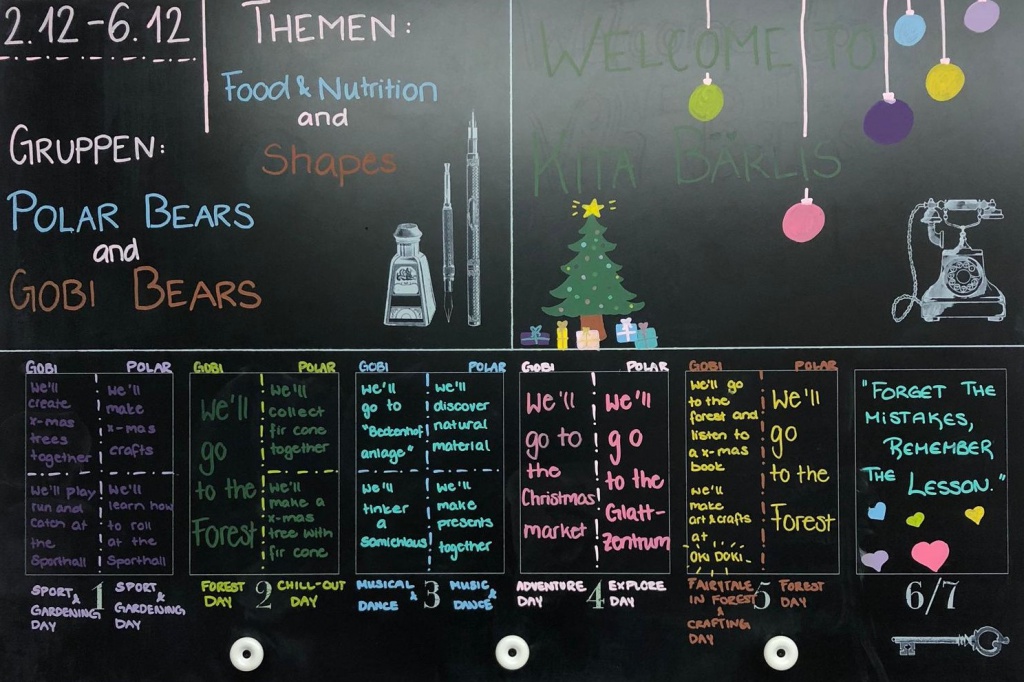 2.12-6.12
THEMEN:
Food & Nutrition
and
Shapes
GRUPPEN:
POLAR BEARS
and
GOBI BEARS
WELCOME TO
KITA BÄRLIS
GOBI POLAR
We'll
create
x-mas
trees
together
We'll
make
x-mas
crafts
We'll play
run and
catch at
the
Sporthall
We'll
learn how
to roll
at the
Sporthall
SPORT &
GARDENING
DAY
1
SPORT &
GARDENING
DAY
GOBI POLAR
We'll
go
to the
Forest
We'll
collect
fir cone
together
We'll
make a
x-mas
tree with
fir cone
FOREST
DAY
2
CHILL-OUT
DAY
GOBI POLAR
We'll
go to
"Beckenhof
anlage"
We'll
discover
natural
material
We'll
tinker
a
Samichlaus
We'll
make
presents
together
MUSICAL &
DANCE
3
MUSIC &
DANCE
GOBI POLAR
We'll
go to
the
Christmas
market
We'll
go
to the
Glatt-
zentrum
ADVENTURE
DAY
4
EXPLORE
DAY
GOBI POLAR
We'll go
to the
forest and
listen to
a x-mas
book
We'll
make
art & crafts
at
OKi DOKi.
We'll
go
to the
Forest
FAIRYTALE
IN FOREST
&
CRAFTING
DAY
5
FOREST
DAY
"FORGET THE
MiSTAKES,
REMEMBER
THE LESSON."
6/7